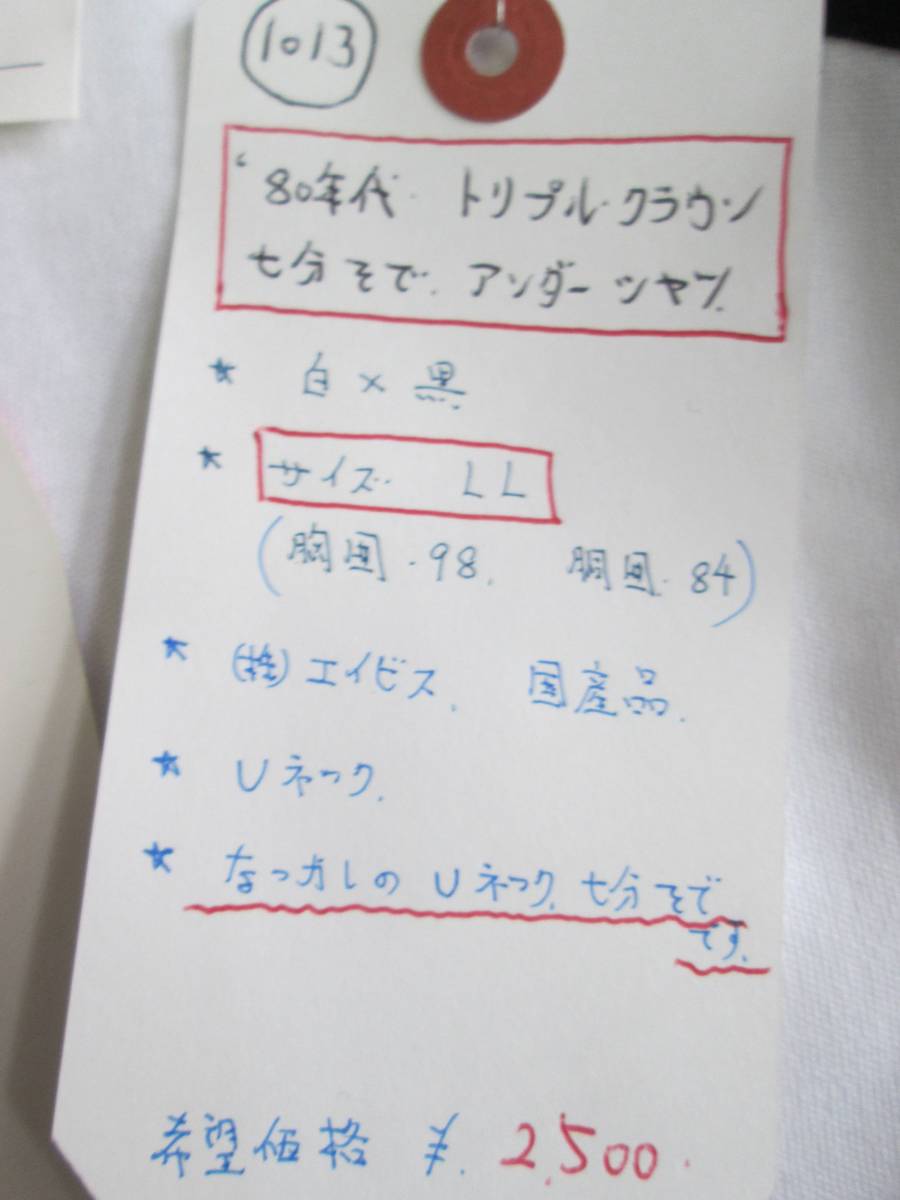 1013
'80年代 トリプル・クラウン
七分そで. アンダーシャツ
★ 白×黒
★ サイズ LL
(胸囲・98. 胴囲・84)
★ (株)エイビス. 国産品.
★ Uネック.
★ なつかしの Uネック. 七分そで
です.
希望価格 ¥. 2,500.